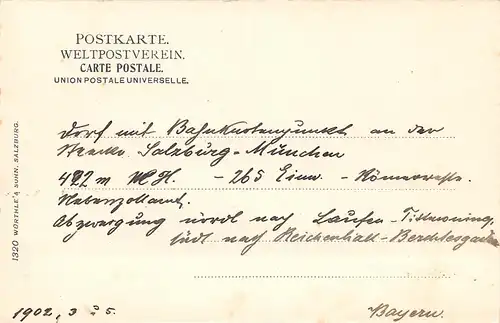 POSTKARTE.
WELTPOSTVEREIN.
CARTE POSTALE.
UNION POSTALE UNIVERSELLE.
Dorf mit Bahnknotenpunkt an der
Strecke Salzburg-München
422 m M.H. - 265 Einw. - Römerreste.
Nebenzollamt.
Abzweigung nördl nach Laufen-Tittmoning,
südl nach Reichenhall-Berchtesgaden
1902, 3 5.
Bayern.
1320 WÜRTHLE & SOHN, SALZBURG.